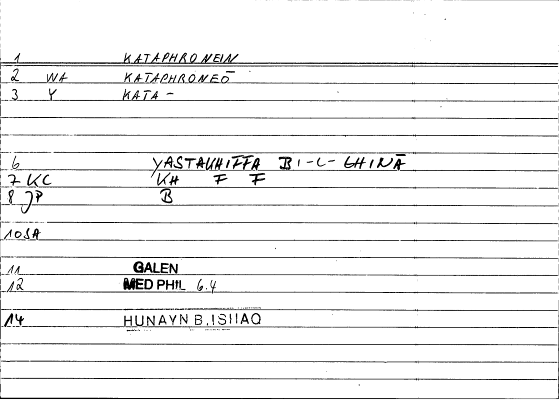 1 KATAPHRONEIN
2 WA KATAPHRONEŌ
3 Y KATA-
6 YASTAKHIFFA BI-L-GHINĀ
7 KC KH F F
8 JP B
10 SA
11 GALEN
12 MED PHIL 6.4
14 HUNAYN B.ISHAQ